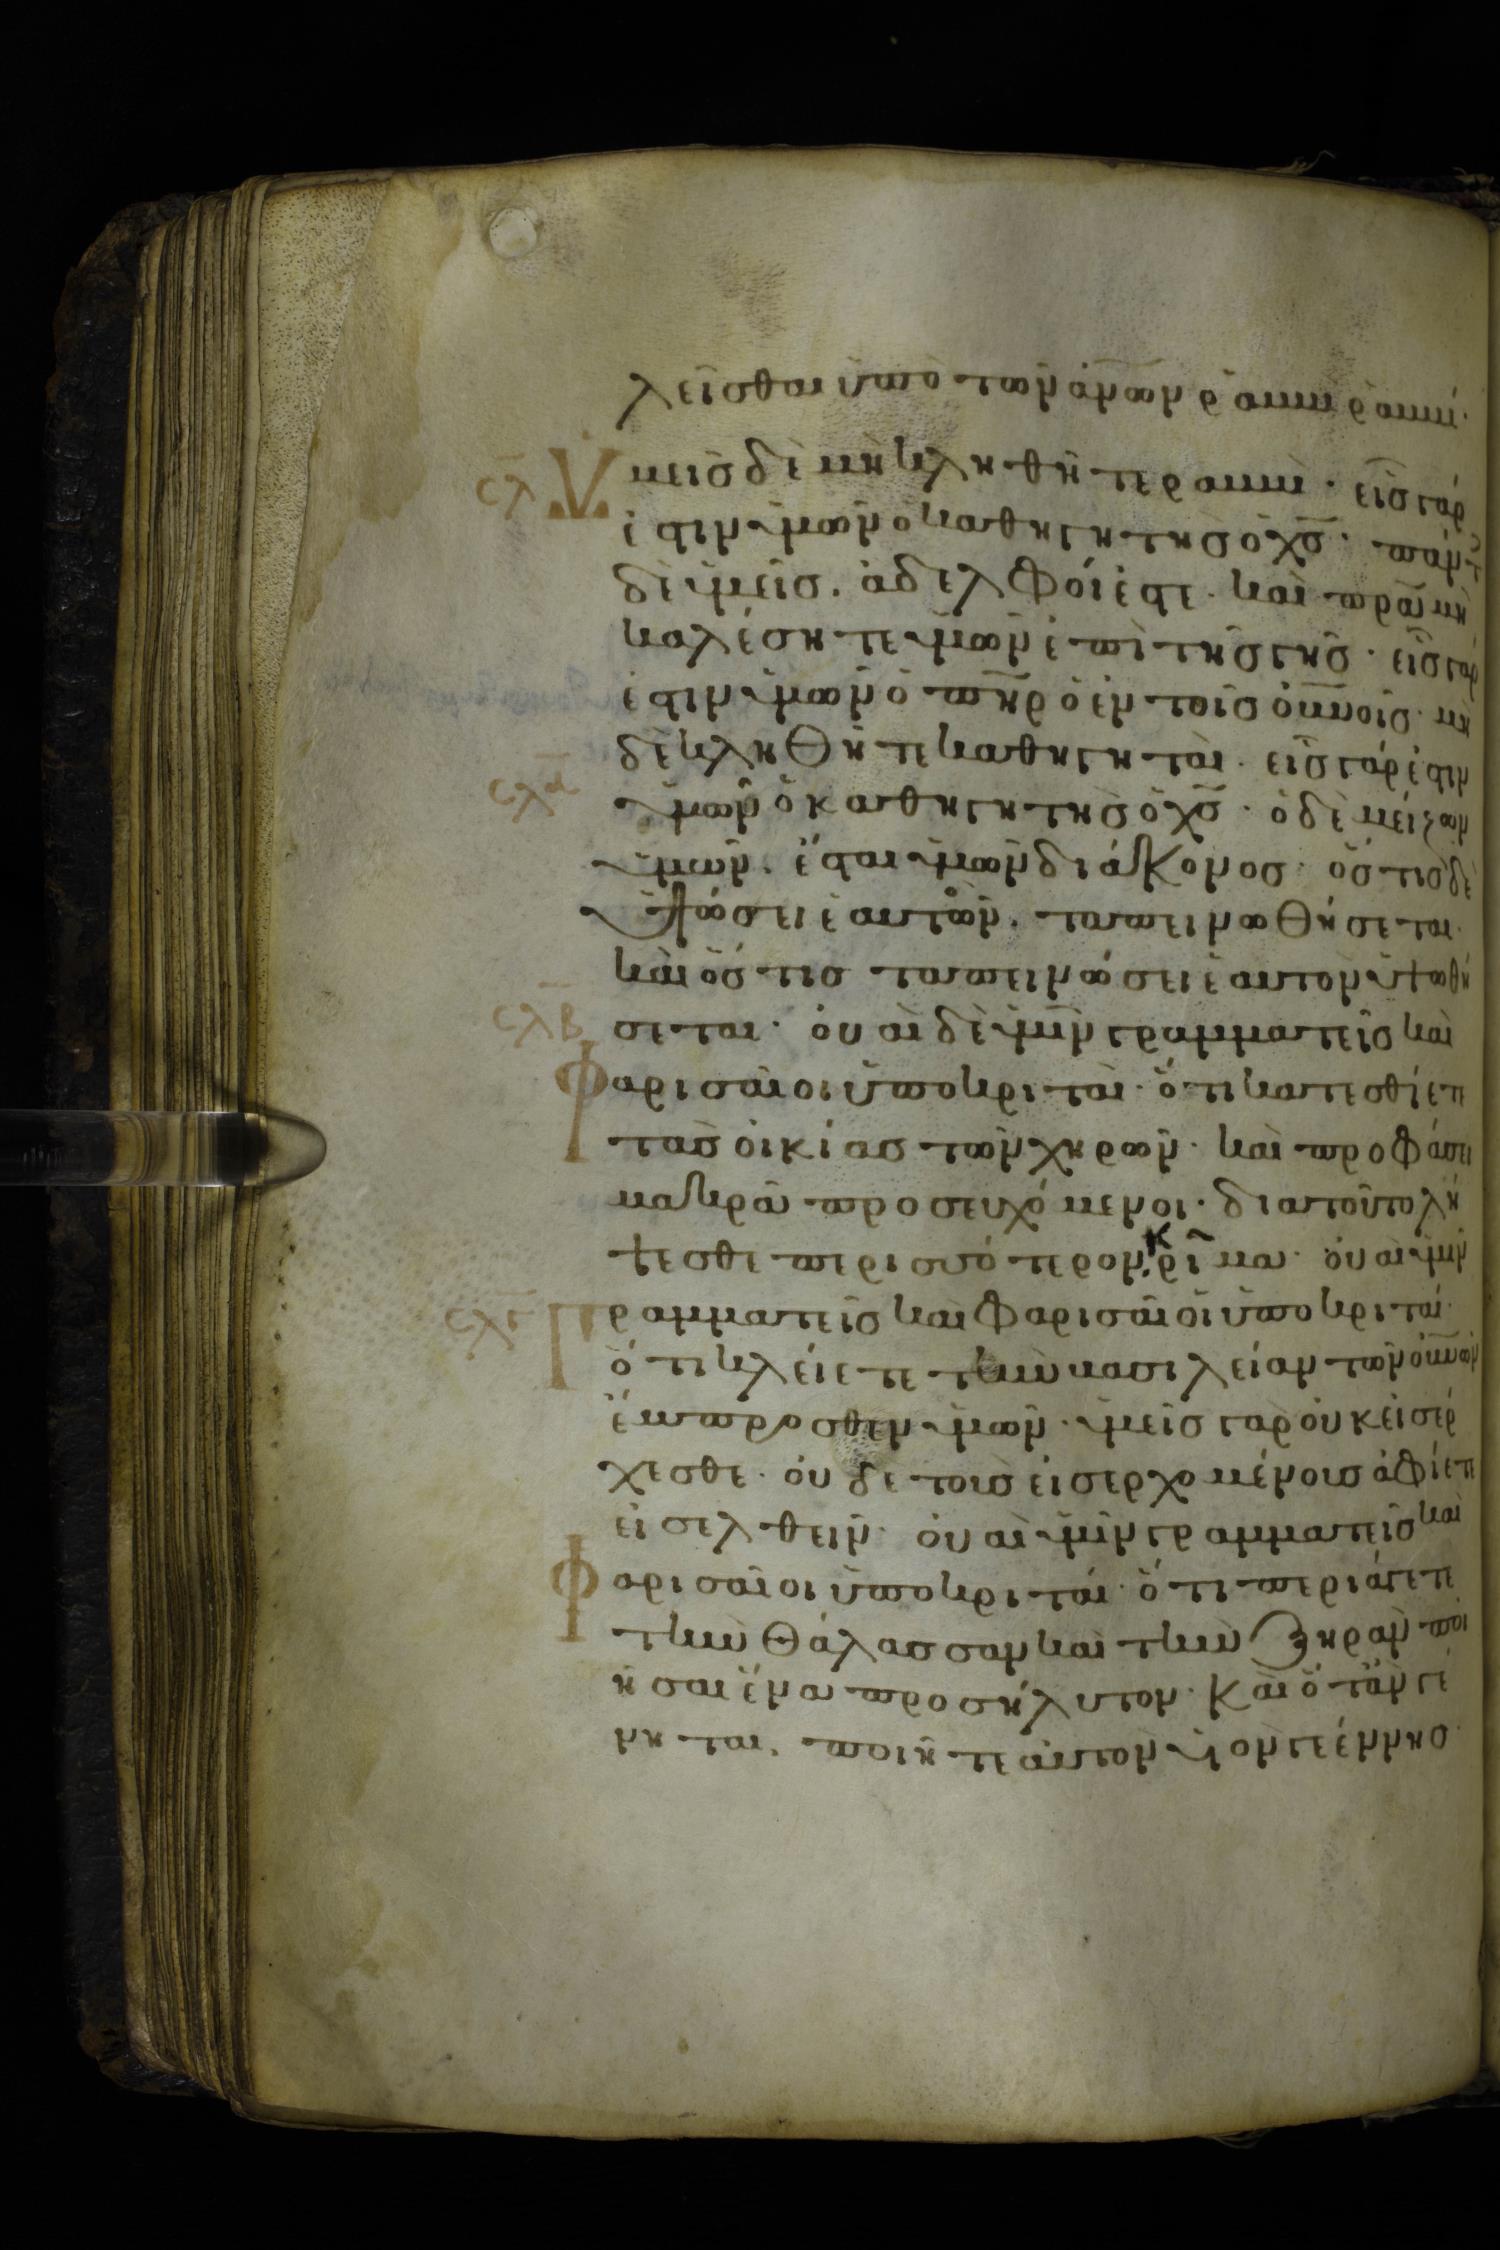 λεῖσθαι ὑπὸ τῶν ἀνων ραββι ραββί·
σλ Ὑμεῖς δὲ μὴ κληθῆτε ραββὶ· εἷς γάρ
ἐστιν ὑμῶν ὁ καθηγητὴς ὁ χς· πάντες
δὲ ὑμεῖς ἀδελφοί ἐστε· καὶ πρα μὴ
καλέσητε ὑμῶν ἐπὶ τῆς γῆς· εἷς γάρ
ἐστιν ὑμῶν ὁ πηρ ὁ ἐν τοῖς οὐνοις· μη
δὲ κληθῆτε καθηγηταὶ· εἷς γάρ ἐστιν
σλα ὑμῶν ὁ καθηγητὴς ὁ χς· ὁ δὲ μείζων
ὑμῶν· ἔσται ὑμῶν διάκονος· ὅστις δὲ
ὑψώσει ἑαυτὸν· ταπεινωθήσεται·
καὶ ὅστις ταπεινώσει ἑαυτὸν ὑψωθή
σλβ σεται· οὐαὶ δὲ ὑμῖν γραμματεῖς καὶ
Φαρισαῖοι ὑποκριταὶ· ὅτι κατεσθίετε
τὰς οἰκίας τῶν χηρῶν· καὶ προφάσει
μακρᾶ προσευχόμενοι· διατοῦτο λή
ψεσθε περισσότερον κρῖμα· οὐαὶ ὑμῖν
σλγ Γραμματεῖς καὶ Φαρισαῖοι ὑποκριταί·
ὅτι κλείετε τὴν βασιλείαν τῶν οὐνῶν
ἔμπροσθεν ὑμῶν· ὑμεῖς γαρ οὐκ εἰσέρ
χεσθε· οὐδε τοὺς εἰσερχομένους ἀφίετε
εἰσελθεῖν· οὐαὶ ὑμῖν γραμματεῖς καὶ
Φαρισαῖοι ὑποκριταί· ὅτι περιάγετε
τὴν θάλασσαν καὶ τὴν ξηρὰν ποι
ῆσαι ἕνα προσήλυτον· Καὶ ὅταν γέ
νηται, ποιῆτε αὐτὸν υἱὸν γεέννης·